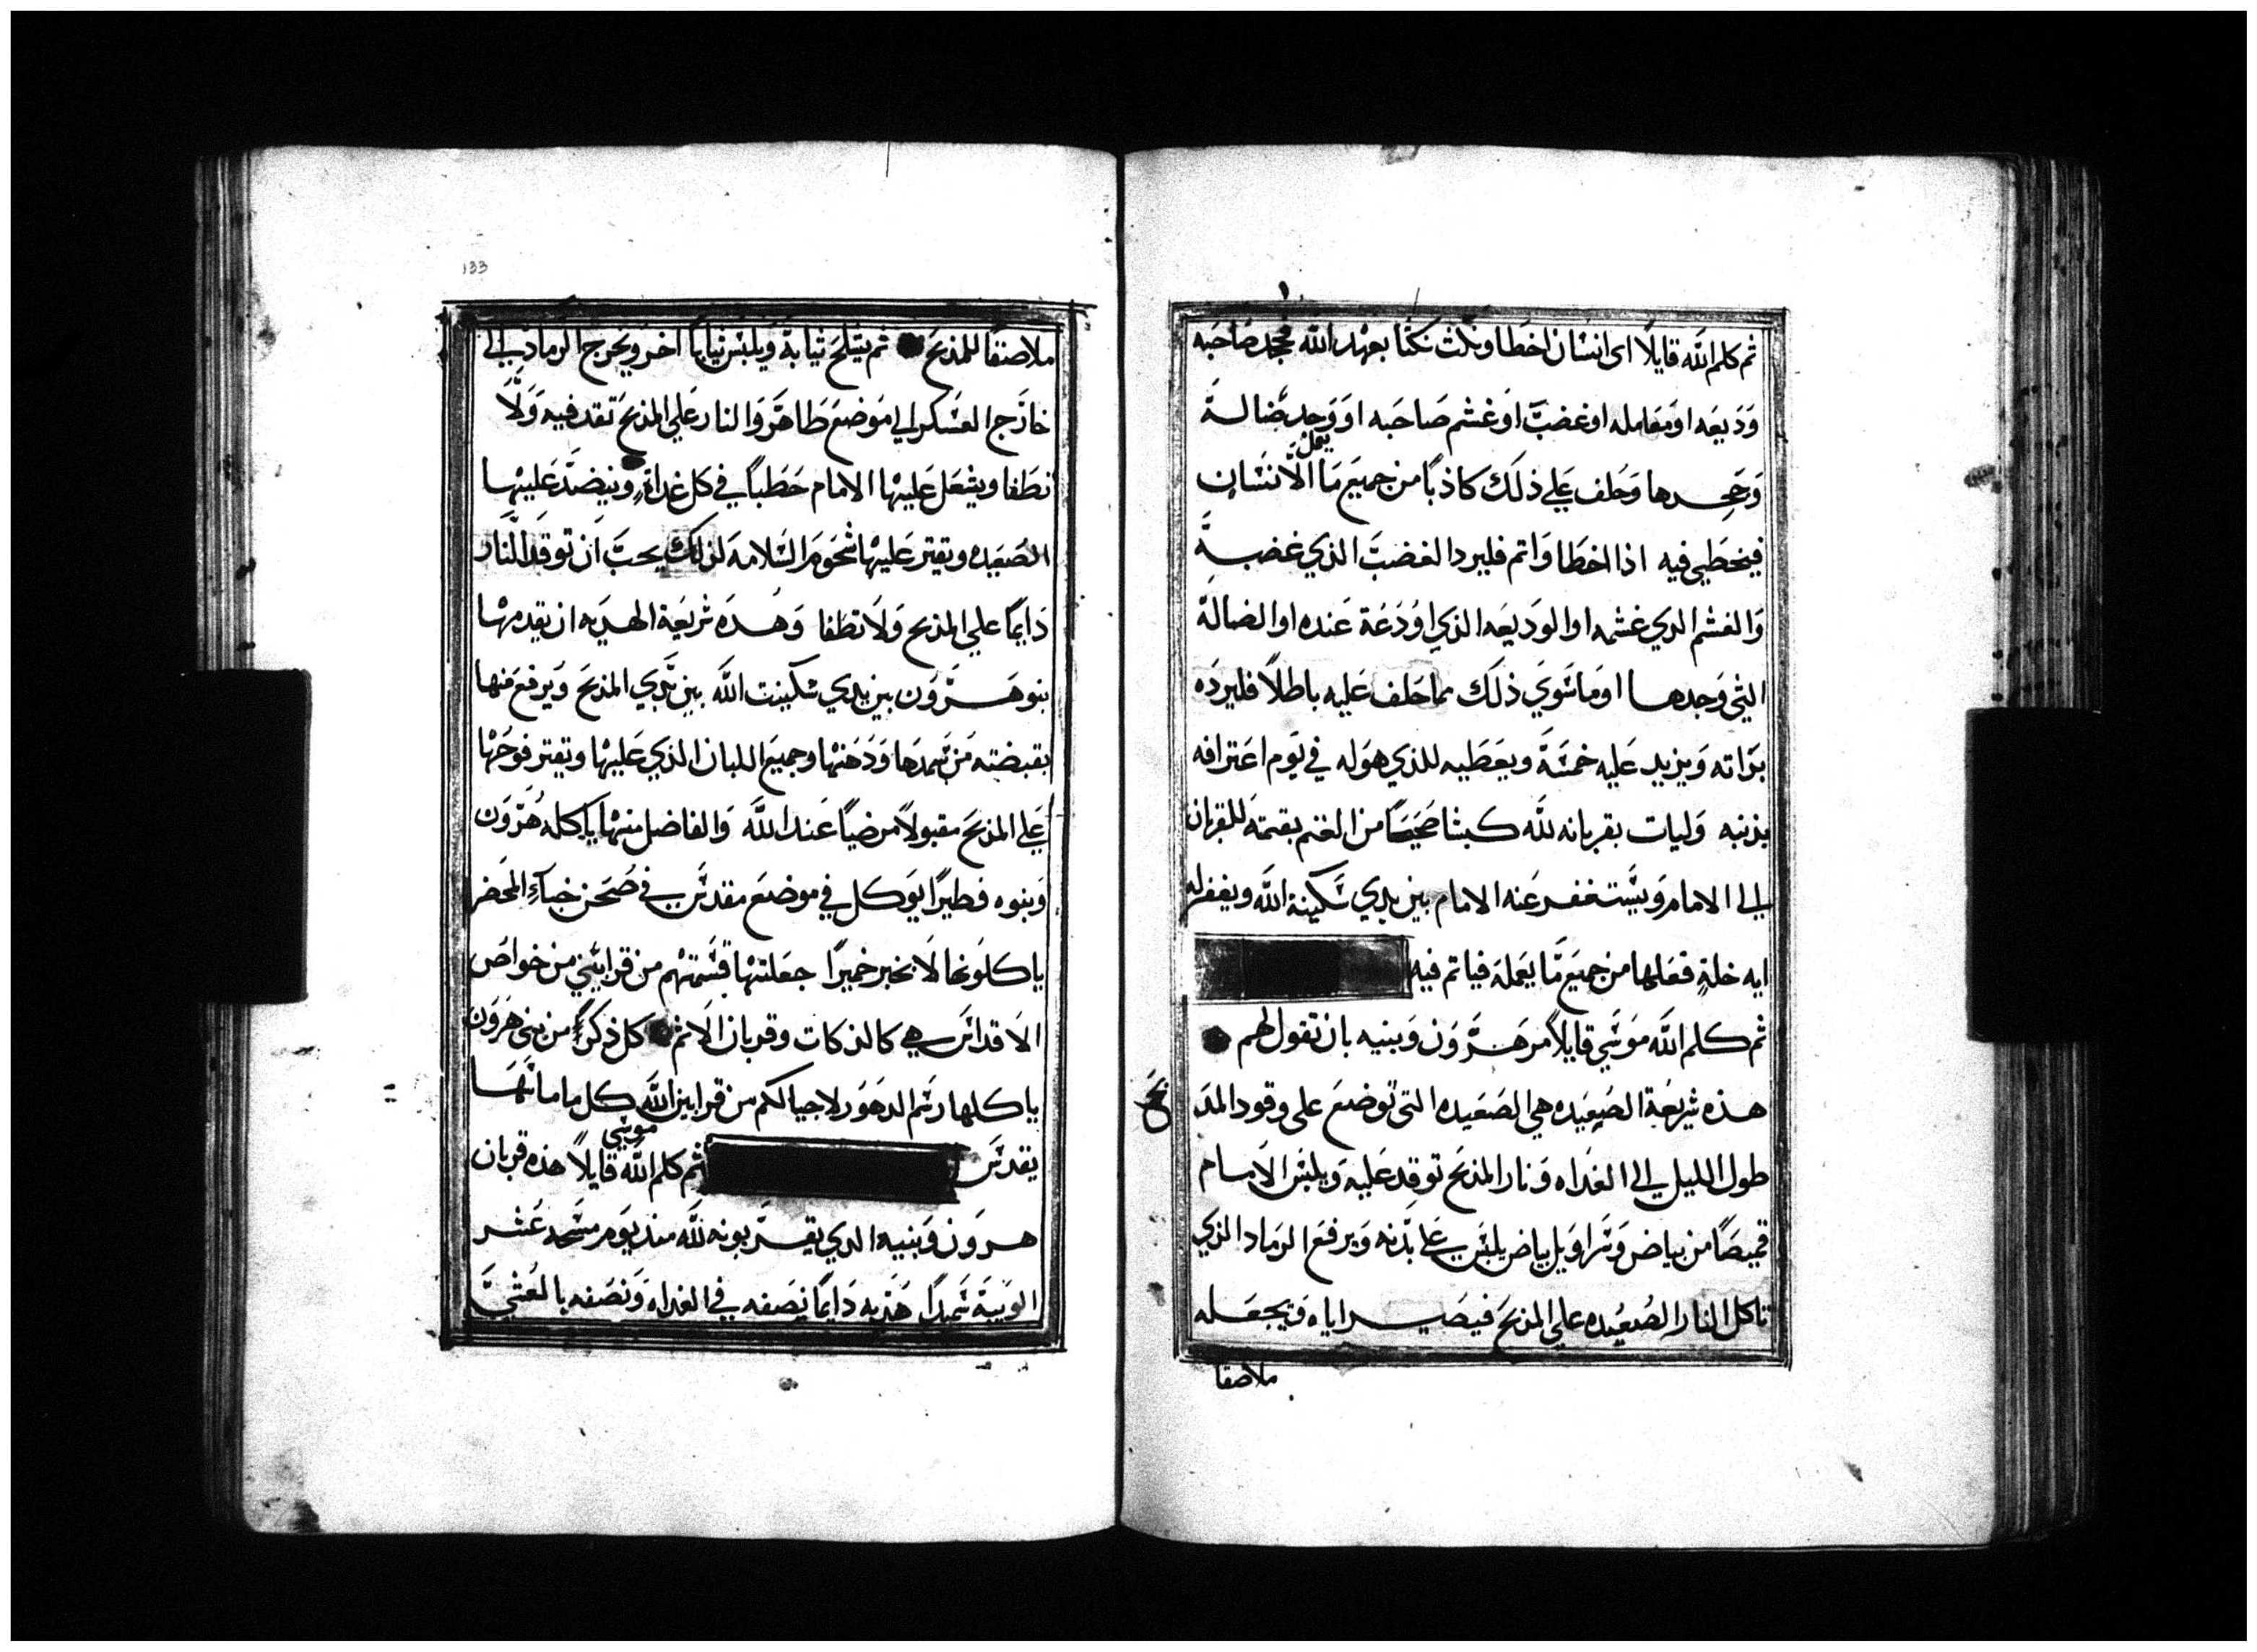 ثم كلم الله قايلًا اى انسان اخطا ونكث نكثا بعهد الله فجحد صاحبه
وَدَيعَه او مَعامله او غضبَّ اوَ غشم صَاحَبه او وَجد ضالة
وَجَحدها وَحَلف عَلي ذلَك كاذبًا من جميَع مَا يعمل الانسَان
فيخطي فيه اذا اخطَا وَاتم فليرد الغضبَ الذي غضبه
وَالغشم الدي غشمه او الوَديعَه الذي اوُدَعَة عَنده او الضالة
التي وَجدها اومَا سَوَي ذلَك مما حَلف عَليه باطلًا فليردَه
برَاته وَيزيد عَليه خمسَة ويعَطَيه للذي هوَله في يَوم اعَترافه
بذنبه وَليات بقربانه للَّه كبشا صَحيحًا من الغنم بقيمته للقربان
الي الامام وَيسَتغفر عَنه الامام بين يدي سَكينة اللَه ويغفر له
ايه خلةٍ فعَلها من جميَع مَّا يعَمله فياتم فيه
ثم كلم اللَه موَسَي قايلًا مر هَرَّوَن وَبنيه بان تقول لهم
هذه شريعَة الصَعَيده هي الصَعَيده التى توضعَ على وقود المذ
بح
طول الليل الي الغَداه وَنار المذبَح توقد عَليه وَيلبَس الاَمام
قميصَاً من بياض وَسَراوَيل بياض يلبسَ عَلي بدَنه وَيرفعَ الرَمَاد الذي
تاكل النار الصَعيَده علي المذبحَ فيصَير اياه وَيجعَله
ملاصقا
133
ملاصقًا للمذبحَ ثم يسَلخ ثيابة وَيلبسَ ثيابًا اخر ويخرج الرَماد الي
خارَج العَسَكر الي مَوَضعَ طَاهَر وَالنار عَلي المذبحَ تقد فيه وَلَا
تطَفا ويشعَل عَليهْا الامام حَطَباً في كل غداةٍ وينضدَّ عَليهْا
الصَعَيده ويقتر عَليهْا شحَوم السَلامه لذلك يجبَ ان توقد النار
دَايمًا علي المذبح وَلَا تطَفا وَهُذَه شرَيعَة الهديه ان يقدمهْا
بنو هَرَّوَن بين يدي سَكينت اللَّه بين يَدي المذبحَ وَيرفعَ منها
بقبضته مَن سَمدَها وَدَهنهْا وجميعَ اللبان الذي عَليهْا ويقتر فوَحَهْا
عَلي المذبحَ مقبولًا مرضيًا عَند اللَّه وَالفاضل منهْا ياكله هَرَّوَن
وَبنوه فَطيرًا يَوَكل في موضعَ مقدسَ في صَحَن خباءِ المحَضر
ياكلوَنها لَا بخبز خميرًا جعَلتهْا قسَمتهْم من قرابَيني من خواص
الاَقداسَ هي كالذكات وقربان الاَثم كل ذكرٍ من بني هَرَوَن
ياكلها رسَم الدهَوَر لاجيالكم من قرابين اللَه كل ما ماسَّهَا
يقدسَ ثم كلم اللَّه موسَي قايلًا هذه قربان
هروَن وَبنيه الدي يقرَّبونه للَّه منذ يوَم مسَحه عُشر
الويبَة سَميدًا هَدَيه دَايمًا نصَفه في الغداه وَنصَفه بالعَشيَّ